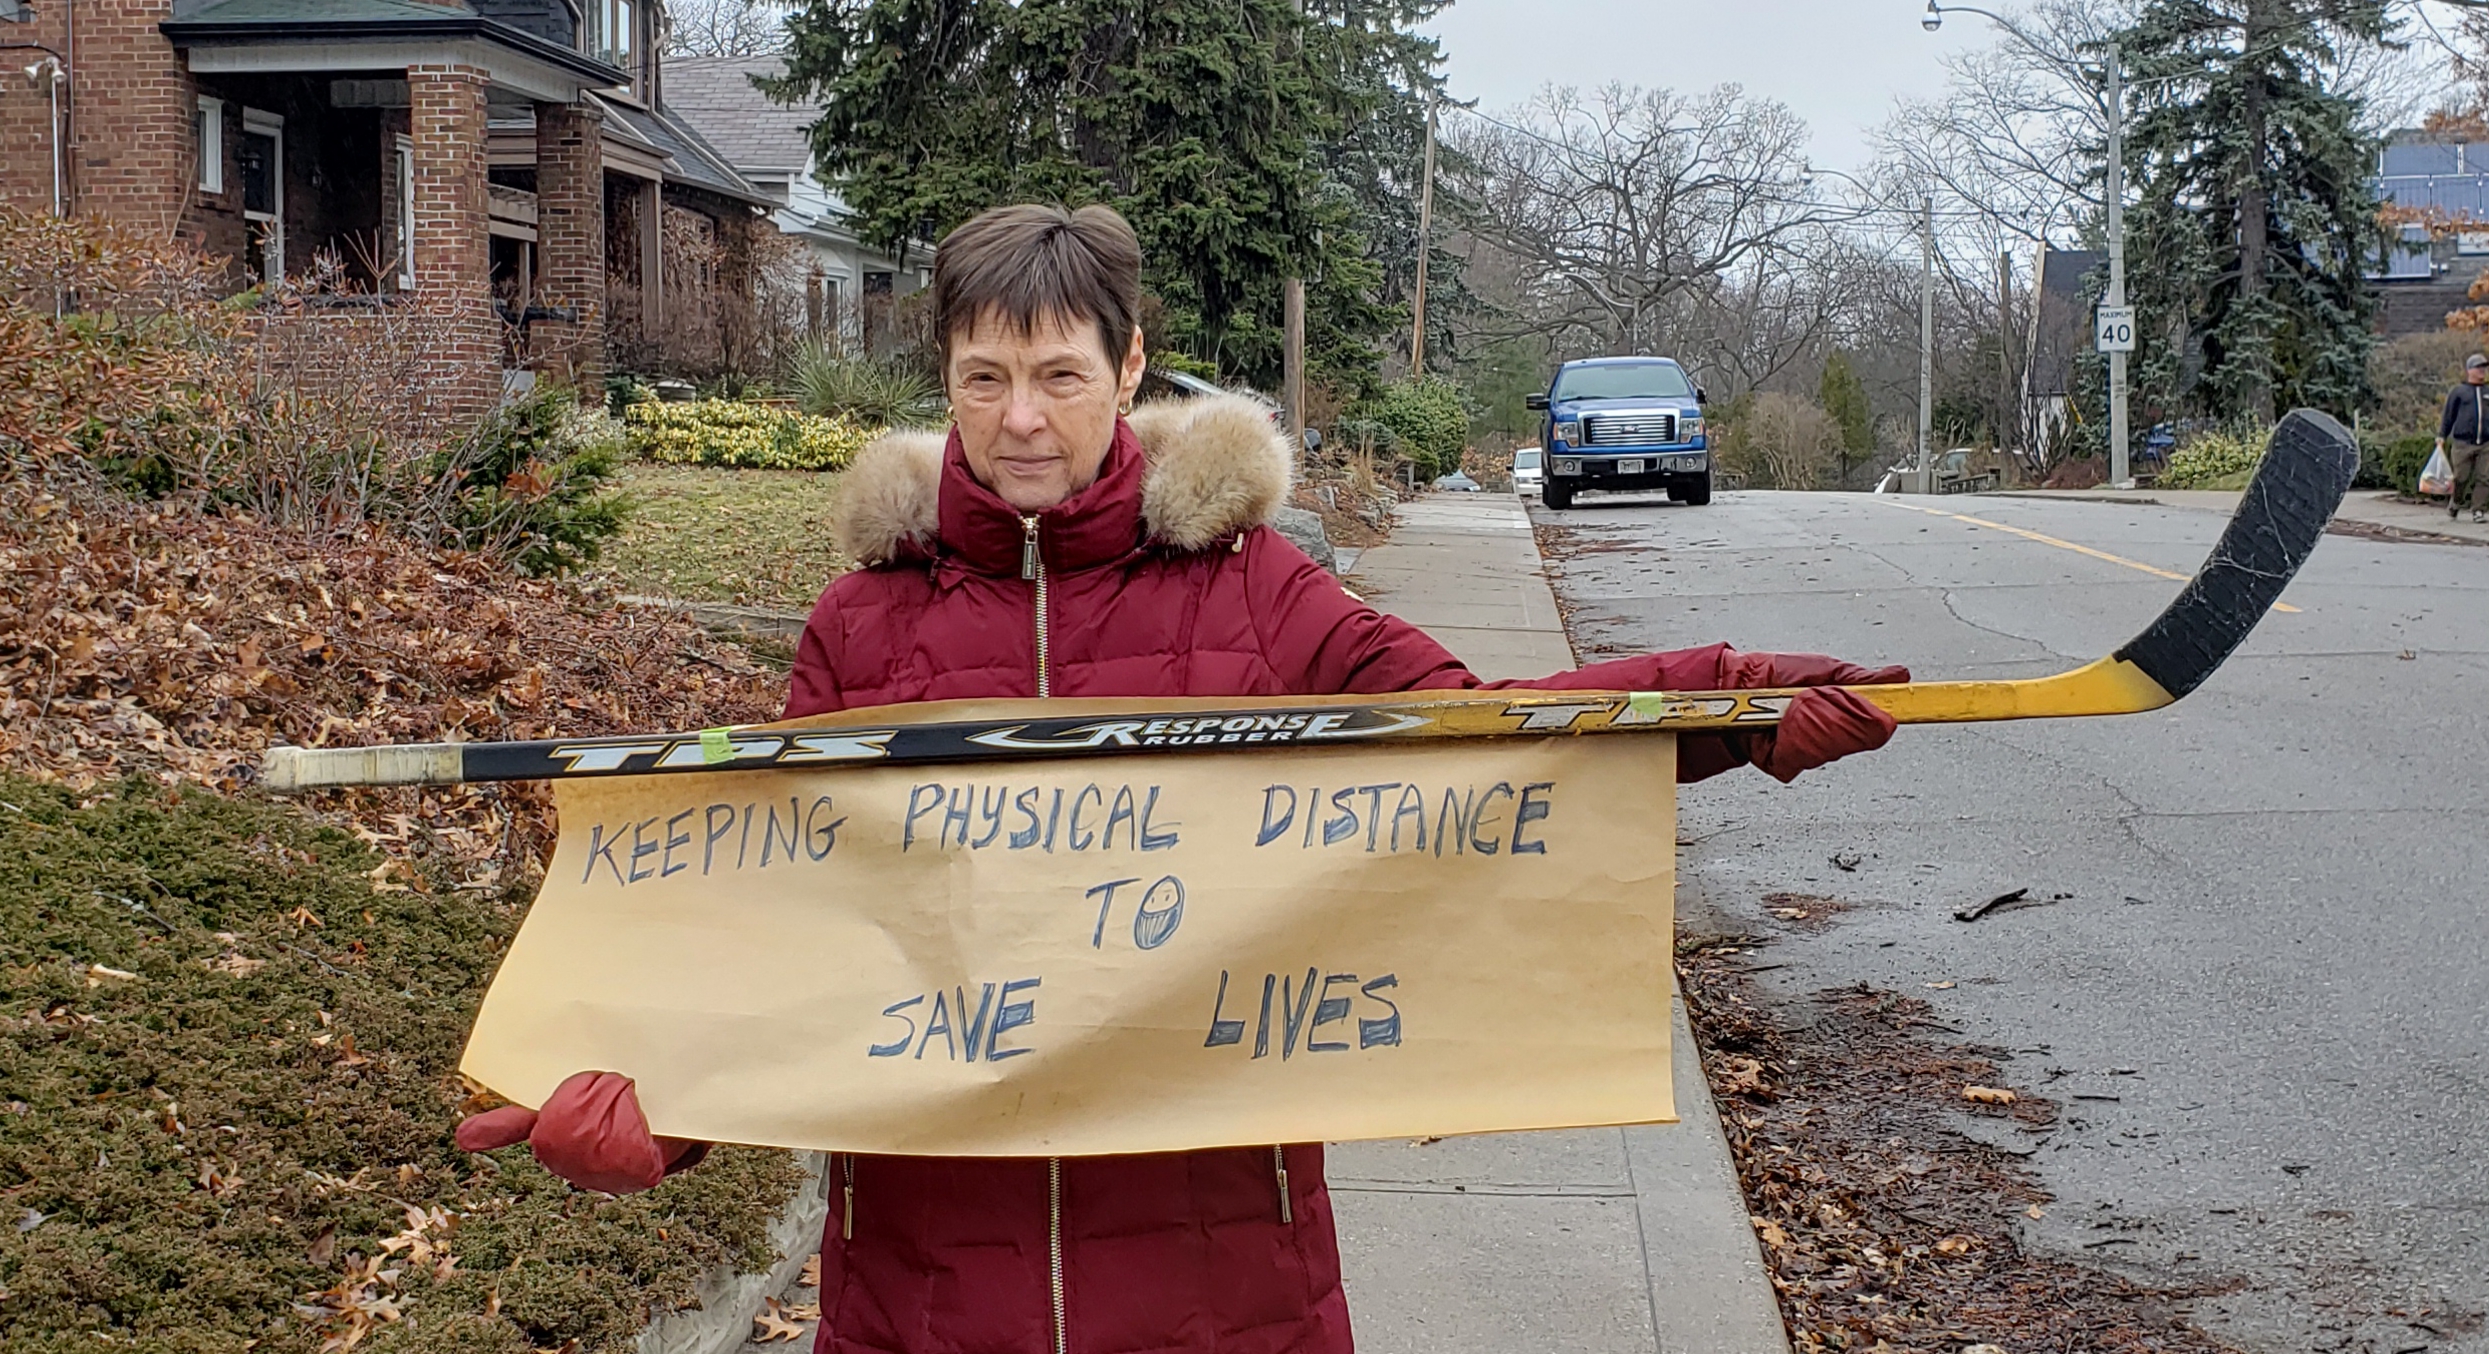 MAXIMUM
40
TPS RESPONSE TPS
RUBBER
KEEPING PHYSICAL DISTANCE
TO
SAVE LIVES